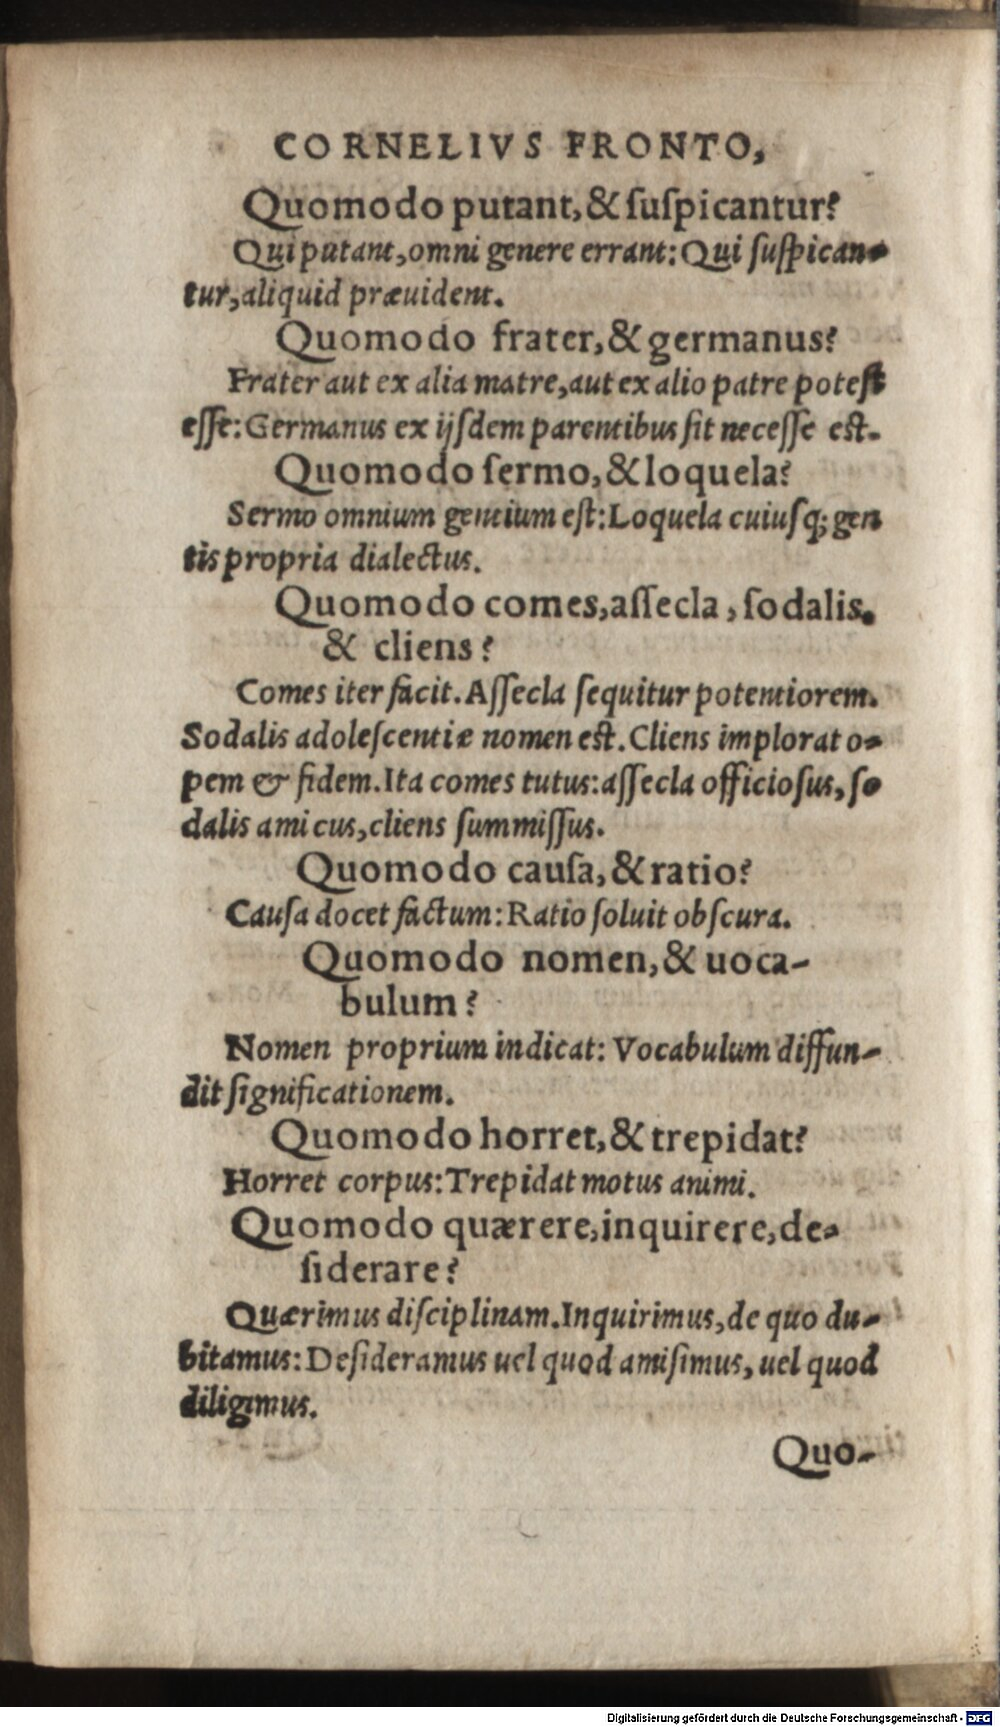 CORNELIVS FRONTO,
Quomodo putant, & ſuſpicantur?
Qui putant, omni genere errant: Qui ſuſpican-
tur, aliquid præuident.
Quomodo frater, & germanus?
Frater aut ex alia matre, aut ex alio patre poteſt
eſſe: Germanus ex ijſdem parentibus ſit neceſſe eſt.
Quomodo ſermo, & loquela?
Sermo omnium gentium eſt: Loquela cuiuſq; gen
tis propria dialectus.
Quomodo comes, aſſecla, ſodalis,
& cliens?
Comes iter facit. Aſſecla ſequitur potentiorem.
Sodalis adoleſcentiæ nomen eſt. Cliens implorat o-
pem & fidem. Ita comes tutus: aſſecla officioſus, ſo
dalis amicus, cliens ſummiſſus.
Quomodo cauſa, & ratio?
Cauſa docet factum: Ratio ſoluit obſcura.
Quomodo nomen, & uoca-
bulum?
Nomen proprium indicat: Vocabulum diffun-
dit ſignificationem.
Quomodo horret, & trepidat?
Horret corpus: Trepidat motus animi.
Quomodo quærere, inquirere, de-
ſiderare?
Quærimus diſciplinam. Inquirimus, de quo du-
bitamus: Deſideramus uel quod amiſimus, uel quod
diligimus.
Quo-
Digitalisierung gefördert durch die Deutsche Forschungsgemeinschaft - DFG